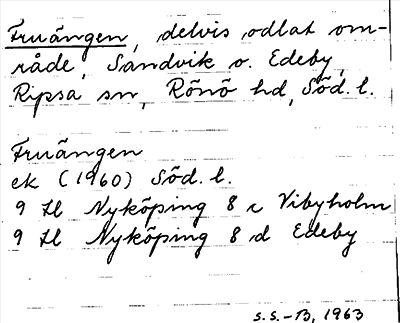 Fruängen, delvis odlat om-
råde, Sandvik o. Edeby,
Ripsa sn, Rönö hd, Söd. l.
Fruängen
ek (1960) Söd. l.
9 H Nyköping 8 c Vibyholm
9 H Nyköping 8 d Edeby
S.S.-B, 1963